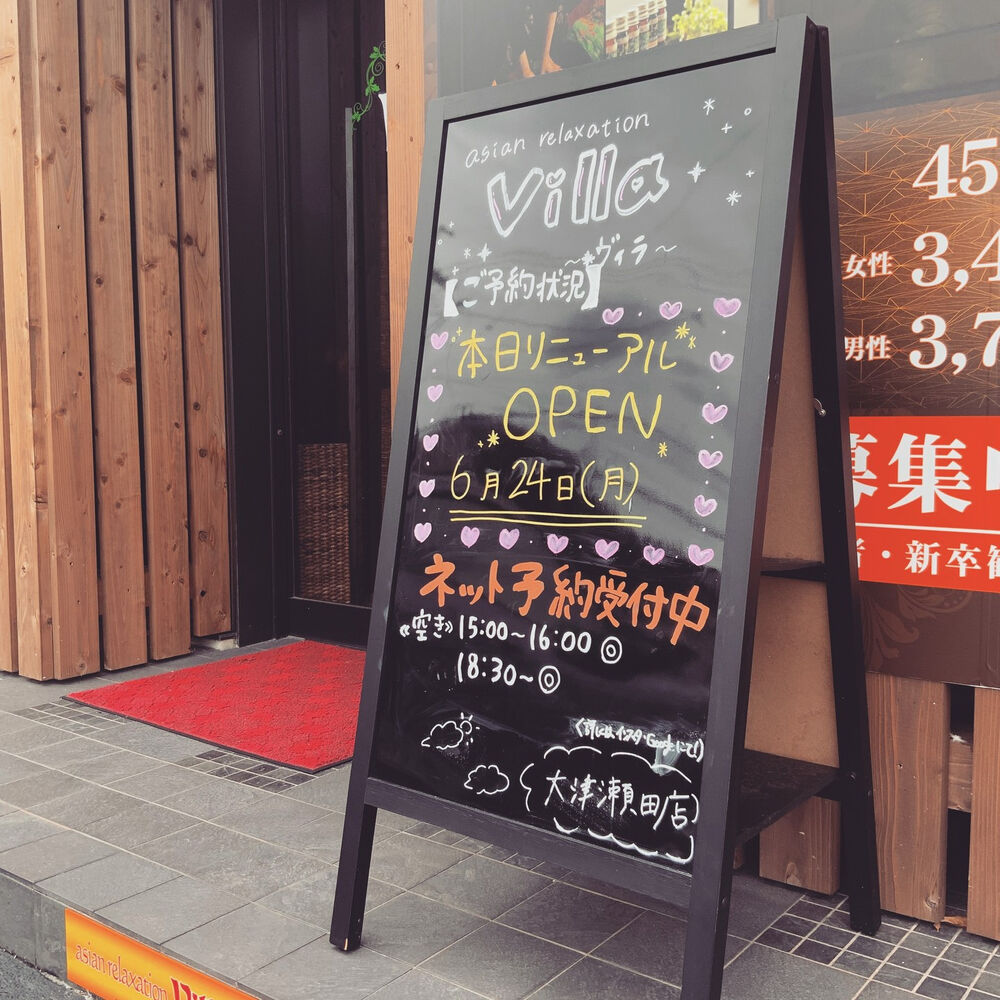 asian relaxation
villa
~ヴィラ~
【ご予約状況】
本日リニューアル
OPEN
6月24日(月)
ネット予約受付中
《空き》15:00~16:00◎
18:30~◎
大津瀬田店
45
女性 3,4
男性 3,7
募集
・新卒歓
asian relaxation